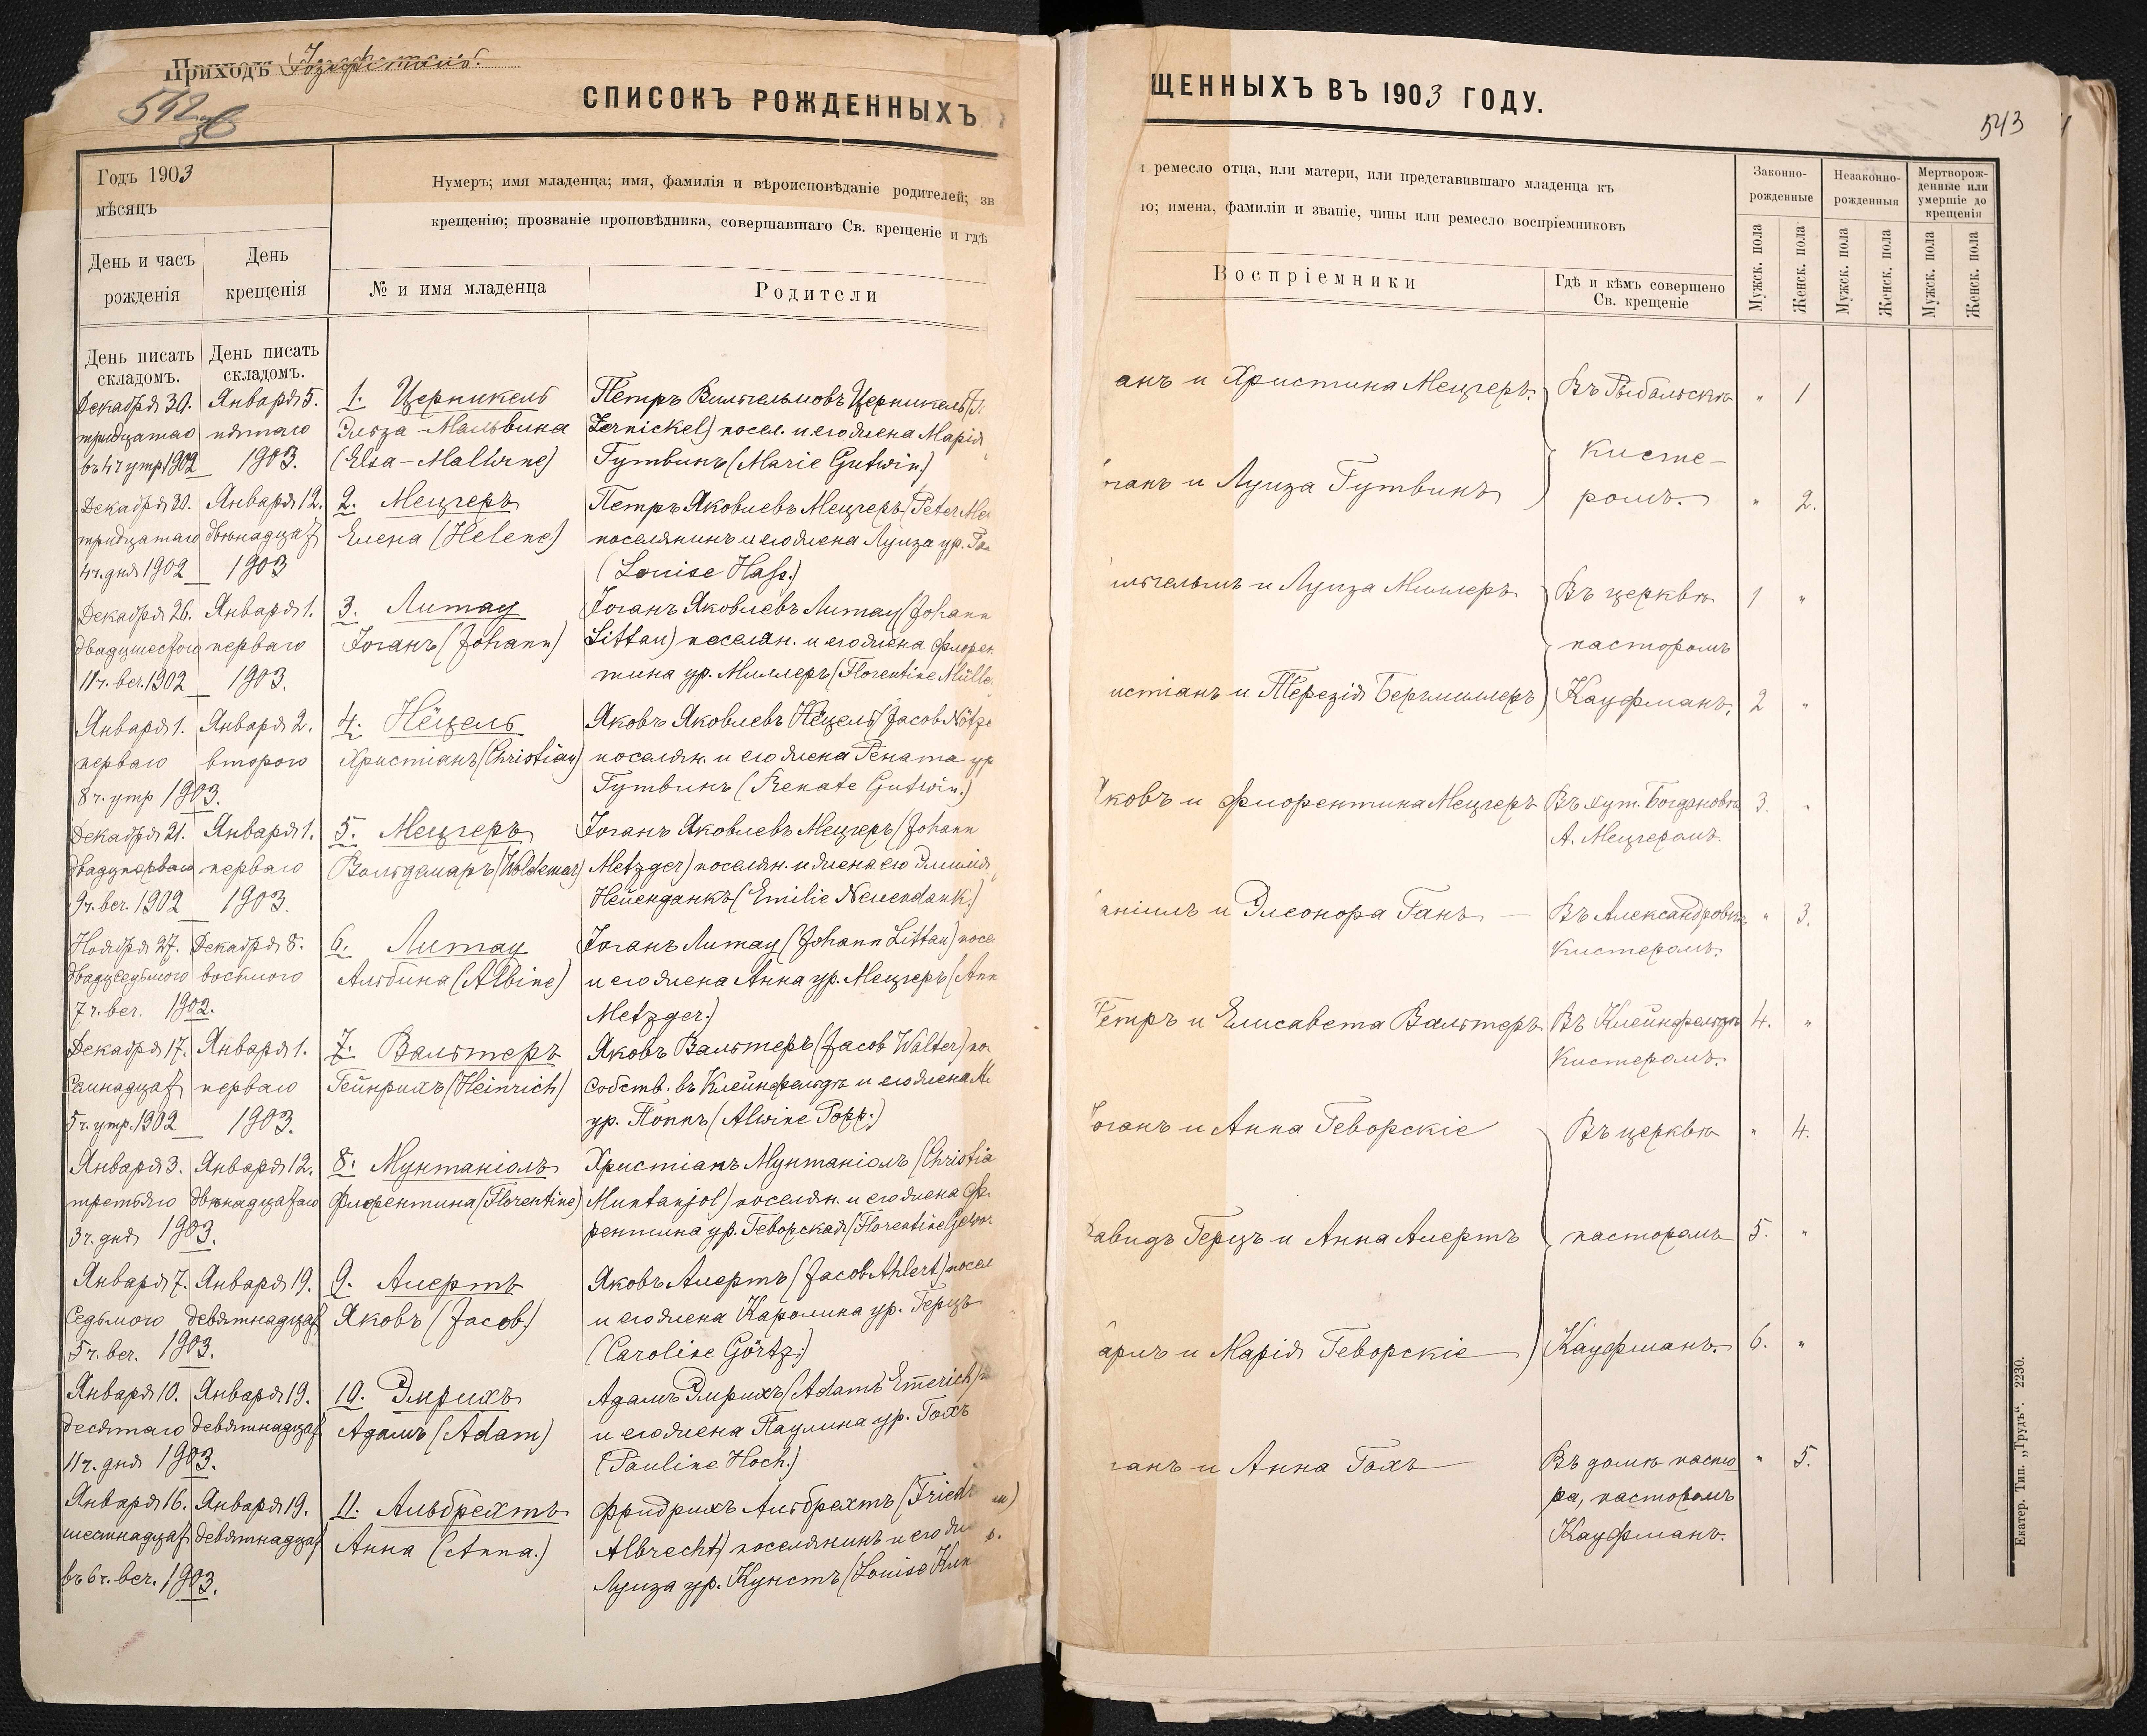 Приходъ Іозефсталь.
542 об
СПИСОКЪ РОЖДЕННЫХЪ
Годъ 1903
мѣсяцъ
Нумеръ; имя младенца; имя, фамилія и вѣроисповѣданіе родителей; зв
крещенію; прозваніе проповѣдника, совершавшаго Св. крещеніе и гдѣ
День и часъ рожденія
День крещенія
№ и имя младенца
Родители
День писать складомъ.
День писать складомъ.
Декабря 30. Января 5. 1. Церникель Петръ Вильгельмовъ Церникель (P.
тридцатаго пятаго Эльза-Мальвина Zernickel) посел. и его жена Марія
въ 4 ч утр. 1902 1903. (Elsa-Malwine) Гутвинъ (Marie Gutwin.)
Декабря 30. Января 12. 2. Мецгеръ Петръ Яковлевъ Мецгеръ (Peter Me
тридцатаго двѣнадцат Елена (Helene) поселянинъ и его жена Луиза ур. Га
4 ч. дня 1902 1903 (Louise Hass.)
Декабря 26. Января 1. 3. Литау Іоганъ Яковлевъ Литау (Johann
двадцшестого перваго Іоганъ (Johann) Littau) поселян. и его жена Флорен
11 ч. веч. 1902 1903. тина ур. Миллеръ (Florentine Mülle
Января 1. Января 2. 4. Нёцель Яковъ Яковлевъ Нёцель (Jacob Nötze
перваго второго Христіанъ (Christian) поселян. и его жена Рената ур
8 ч. утр 1903. Гутвинъ (Renate Gutwin.)
Декабря 21. Января 1. 5. Мецгеръ Іоганъ Яковлевъ Мецгеръ (Johann
двадцперваго перваго Вольдемаръ (Woldemar) Metzger) поселян. и жена его Эмилія
9 ч. веч. 1902 1903. Нейенданкъ (Emilie Neuendank.)
Ноября 27. Декабря 8. 6. Литау Іоганъ Литау (Johann Littau) посе
двадцседьмого восьмого Альбина (Albine) и его жена Анна ур. Мецгеръ (Ann
7 ч. веч. 1902. Metzger.)
Декабря 17. Января 1. 7. Вальтеръ Яковъ Вальтеръ (Jacob Walter) по
Семнадцат перваго Гейнрихъ (Heinrich) собств. въ Клейнфельдѣ и его жена Ал
5 ч. утр. 1902 1903. ур. Поппъ (Alwine Popp.)
Января 3. Января 12. 8. Мунтаніолъ Христіанъ Мунтаніолъ (Christia
третьяго двѣнадцатаго Флорентина (Florentine) Muntanjol) поселян. и его жена Фл
3 ч. дня 1903. рентина ур. Геворская (Florentine Gewor
Января 7. Января 19. 9. Алертъ Яковъ Алертъ (Jacob Ahlert) посел
Седьмого девятнадцат Яковъ (Jacob.) и его жена Каролина ур. Герцъ
5 ч. веч. 1903. (Caroline Görtz.)
Января 10. Января 19. 10. Эмрихъ Адамъ Эмрихъ (Adam Em̄erich)
десятаго девятнадцат Адамъ (Adam) и его жена Паулина ур. Гохъ
11 ч. дня 1903. (Pauline Hoch.)
Января 16. Января 19. 11. Альбрехтъ Фридрихъ Альбрехтъ (Friedr
шестнадцат девятнадцат Анна (Anna.) Albrecht) поселянинъ и его же
въ 6 ч. веч. 1903. Луиза ур. Кунстъ (Louise Kun
ЩЕННЫХЪ ВЪ 1903 ГОДУ.
543
ремесло отца, или матери, или представившаго младенца къ
ю; имена, фамиліи и званіе, чины или ремесло воспріемниковъ
Воспріемники
Гдѣ и кѣмъ совершено Св. крещеніе
Законно-рожденные
Незаконно-рожденныя
Мертворож-денные или умершіе до крещенія
Мужск. пола
Женск. пола
Мужск. пола
Женск. пола
Мужск. пола
Женск. пола
анъ и Христина Мецгеръ. Въ Рыбальскѣ " 1
кисте-
оганъ и Луиза Гутвинъ ромъ. " 2.
ильгельмъ и Луиза Миллеръ Въ церквѣ 1 "
пасторомъ
истіанъ и Терезія Бергмиллеръ Кауфманъ. 2 "
Яковъ и Флорентина Мецгеръ Въ хут. Богдановкѣ 3. "
А. Мецгеромъ.
аніилъ и Элеонора Ганъ Въ Александровкѣ " 3.
Кистеромъ.
Петръ и Елисавета Вальтеръ Въ Клейнфельдѣ 4. "
Кистеромъ.
Іоганъ и Анна Геворскіе Въ церквѣ " 4.
авидъ Герцъ и Анна Алертъ пасторомъ 5. "
арлъ и Марія Геворскіе Кауфманъ. 6. "
ганъ и Анна Гохъ Въ домѣ пасто " 5.
ра, пасторомъ
Кауфманъ.
Екатер. Тип. „Трудъ“. 2230.